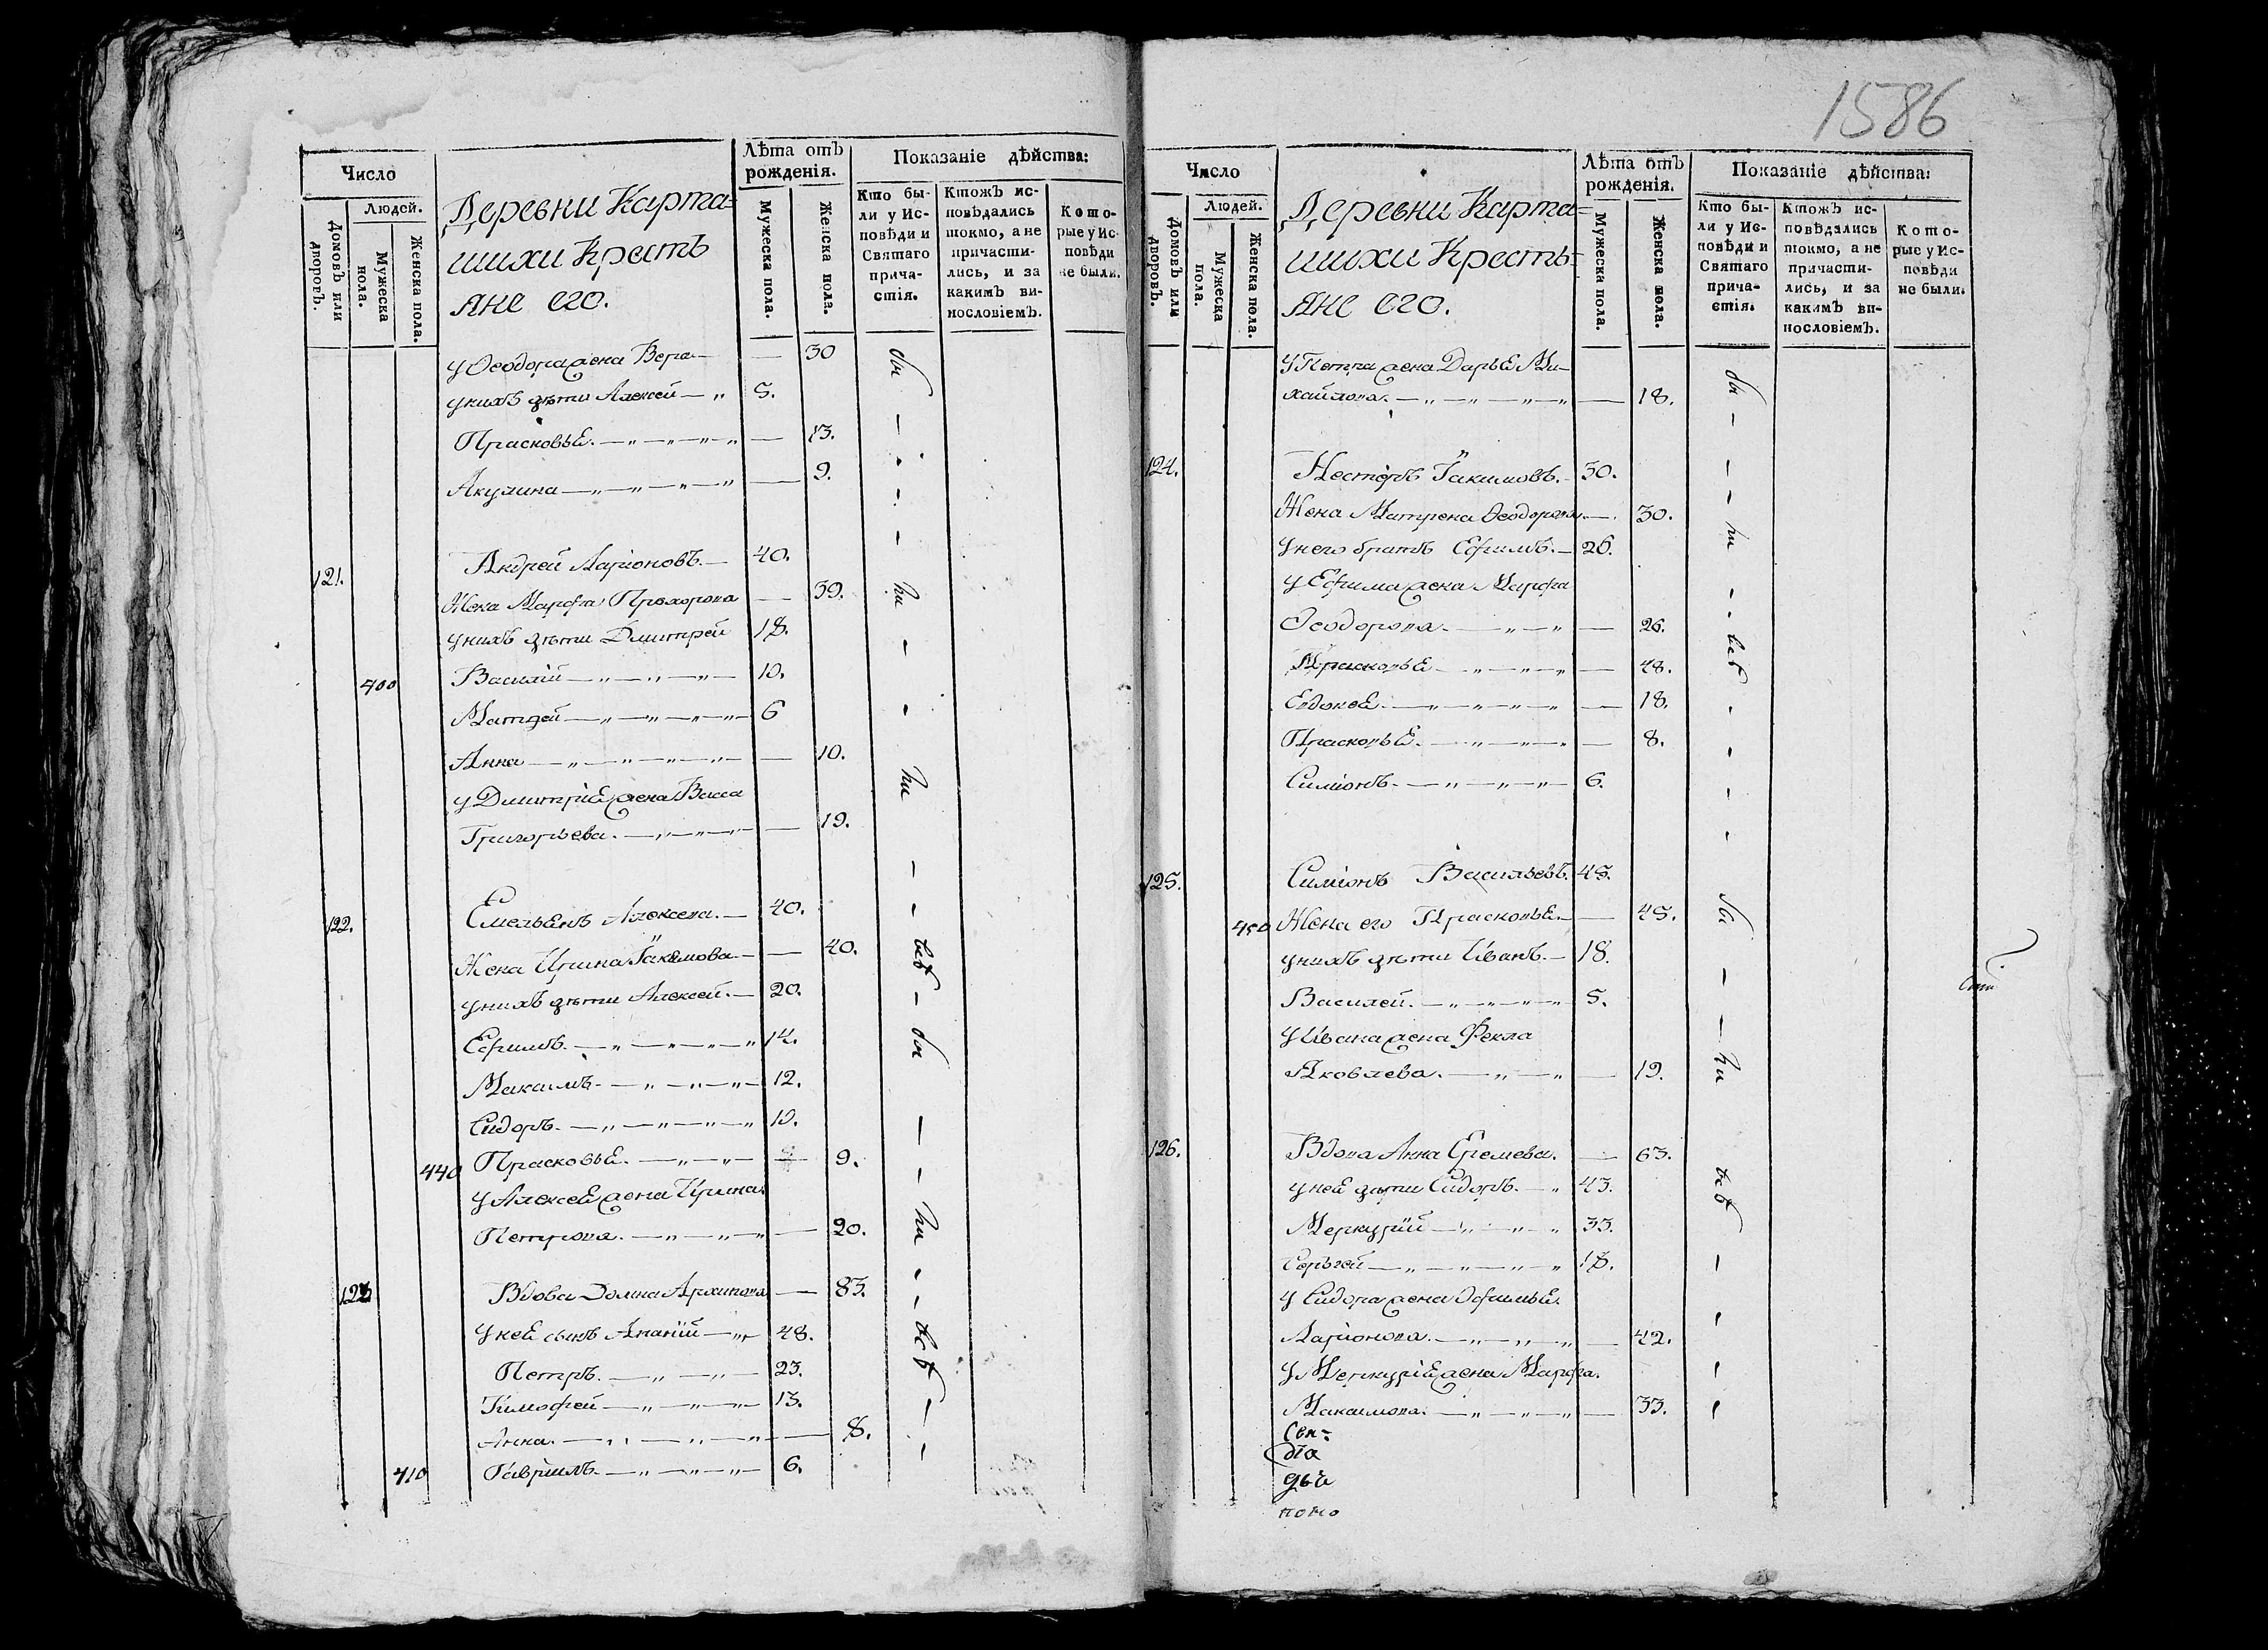 1586
Число
Людей.
Домовъ или дворовъ.
Мужеска пола.
Женска пола.
Деревни Карта=
шихи Кресть
яне его.
Лѣта отъ
рожденія.
Мужеска пола.
Женска пола.
Показаніе дѣйства:
Кто бы-
ли у Ис-
повѣди и
Святаго
прича-
стія.
Ктожъ ис-
повѣдались
токмо, а не
причасти-
лись, и за
какимъ ви-
нословіемъ.
Кото-
рые у Ис-
повѣди
не были.
у Ѳеодора жена Вера — — 30
у нихъ дѣти Алексей — „ 5.
Прасковья. — „ — „ — „ — 13.
Акулина — „ — „ — „ — „ — 9.
121. Андрей Ларіоновъ. — 40.
Жена Марфа Прохорова — 39.
у нихъ дѣти Дмитрей 18.
400 Василій — „ — „ — „ — 10.
Матвей — „ — „ — „ — „ — 6
Анна — „ — „ — „ — „ — — 10.
у Дмитрія жена Васса
Григорьева. — „ — „ — „ — — 19.
122. Емельянъ Алексеевъ. — 40.
Жена Ирина Іакимова. — — 40.
у нихъ дѣти Алексей. — 20.
Ефимъ. — „ — „ — „ — „ 14.
Максимъ. — „ — „ — „ — 12.
Сидоръ. — „ — „ — „ — „ 10.
440 Прасковья. — „ — „ — — 9.
у Алексея жена Ирина
Петрова. — „ — „ — „ — 20.
123 Вдова Домна Архипова — 83.
у нея сынъ Ананій — „ 48.
Петръ. — „ — „ — 23.
Тимофей — „ — „ — „ — 13.
Анна. — „ — „ — „ — — 8.
410 Гаврилъ. — „ — „ — „ — 6.
Число
Людей.
Домовъ или дворовъ.
Мужеска пола.
Женска пола.
Деревни Карта=
шихи Кресть=
яне его.
Лѣта отъ
рожденія.
Мужеска пола.
Женска пола.
Показаніе дѣйства:
Кто бы-
ли у Ис-
повѣди и
Святаго
прича-
стія.
Ктожъ ис-
повѣдались
токмо, а не
причасти-
лись, и за
какимъ ви-
нословіемъ.
Кото-
рые у Ис-
повѣди
не были.
у Петра жена Дарья Ми-
хайлова. — „ — „ — „ — „ — 18.
124. Несторъ Іакимовъ. — 30.
Жена Матрена Ѳеодорова. — 30.
у него братъ Ефимъ. — 26.
у Ефима жена Марфа
Ѳеодорова. — „ — „ — 26.
Прасковья — „ — „ — „ — 48.
Евдокея. — „ — „ — „ — „ — 18.
Прасковья. — „ — „ — „ — 8.
Симіонъ. — „ — „ — „ — 6.
125. Симіонъ Васильевъ. 45.
450 Жена его Прасковья. — — 45.
у нихъ дѣти Иванъ. — 18.
Василей. — „ — „ — „ — „ 5.
у Ивана жена Фекла
Яковлева. — „ — „ — 19.
126. Вдова Анна Еремеева. — 63.
у нея дѣти Сидоръ. — „ 43.
Меркурій — „ — „ — „ 33.
Сергей — „ — „ — „ — „ 18.
у Сидора жена Офимья.
Ларионова. — „ — „ — „ — 42.
у Меркурія жена Марфа.
Максимова. — „ — „ — „ — 33.